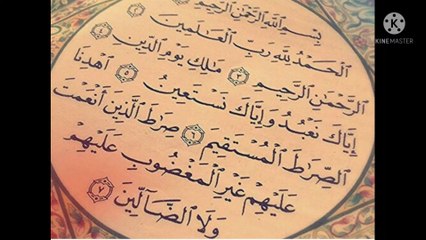 بِسْمِ ٱللَّهِ ٱلرَّحْمَٰنِ ٱلرَّحِيمِ ١
ٱلْحَمْدُ لِلَّهِ رَبِّ ٱلْعَٰلَمِينَ ٢
ٱلرَّحْمَٰنِ ٱلرَّحِيمِ ٣ مَٰلِكِ يَوْمِ ٱلدِّينِ ٤
إِيَّاكَ نَعْبُدُ وَإِيَّاكَ نَسْتَعِينُ ٥ ٱهْدِنَا
ٱلصِّرَٰطَ ٱلْمُسْتَقِيمَ ٦ صِرَٰطَ ٱلَّذِينَ أَنْعَمْتَ
عَلَيْهِمْ غَيْرِ ٱلْمَغْضُوبِ عَلَيْهِمْ
وَلَا ٱلضَّآلِّينَ ٧
KINEMASTER